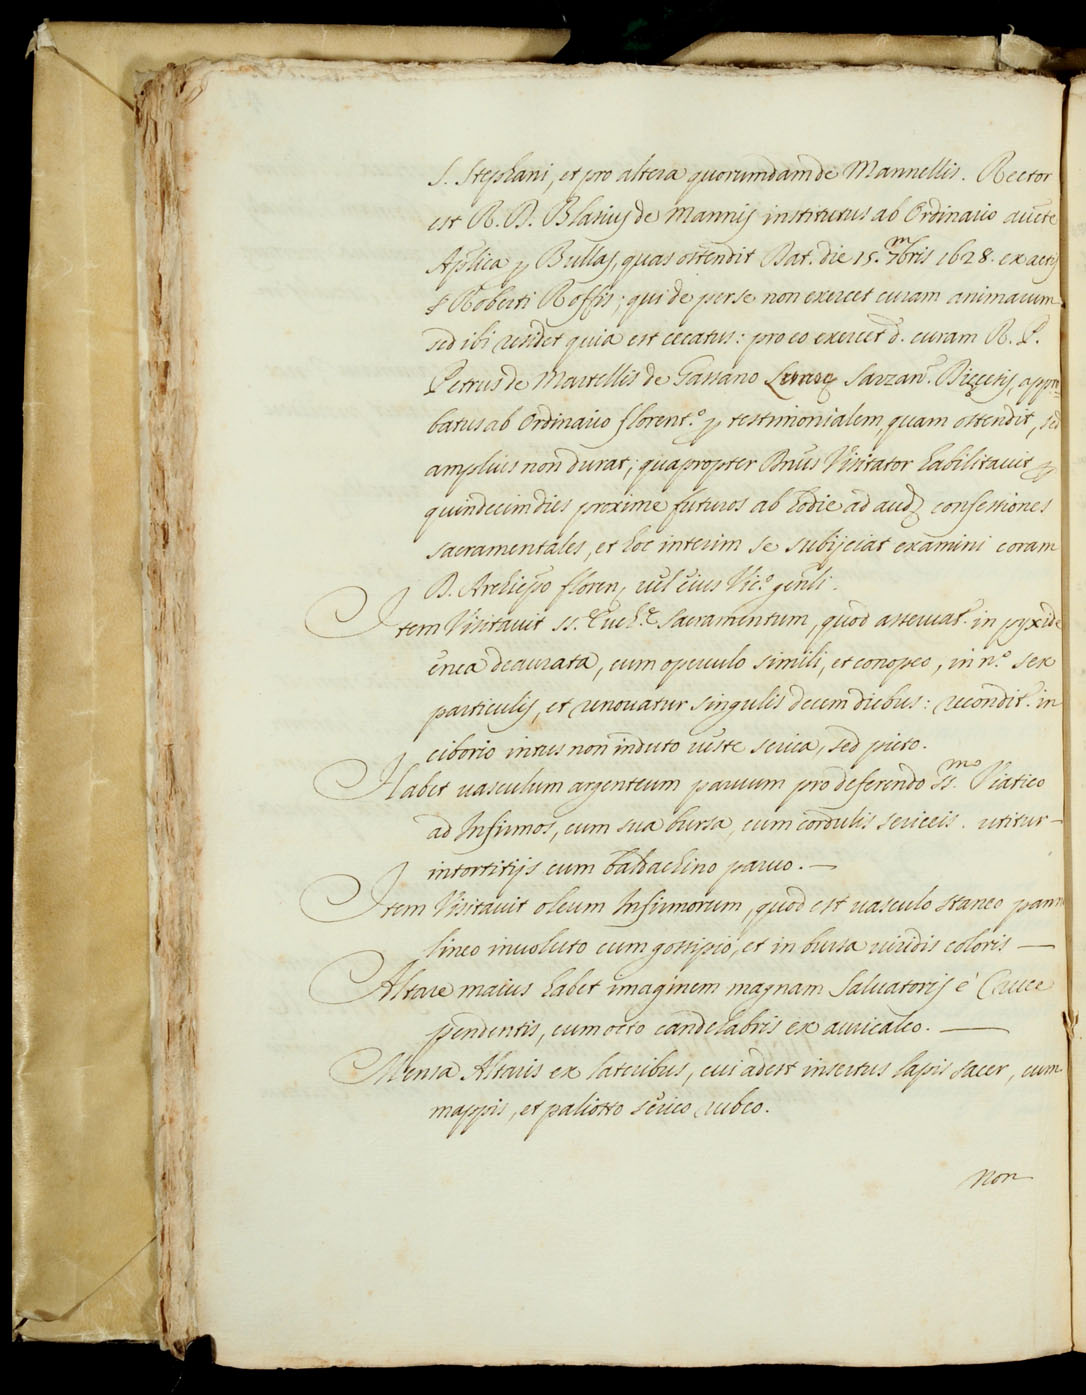 S. Stephani, et pro altera quorumdam de Mannellis. Rector
est R. D. Blasius de Mannis institutus ab Ordinario aucte
Aplica p Bullas, quas ostendit Dat. die 15. 7mbris 1628. ex actis
Roberti Roffis; qui de per se non exercet curam animarum
sed ibi residet quia est cecatus: pro eo exercet d. curam R. P.
Petrus de Martellis de Gassano Sarzan. Diecesis, appro-
batus ab Ordinario florent.o p testimonialem, quam ostendit, sed
amplius non durat; quapropter Dnus Visitator habilitauit p
quindecim dies proxime futuros ab hodie ad aud confessiones
sacramentales, et hoc interim se subijciat examini coram
D. Archiepo floren, uel eius Vic.o genli.
Item Visitauit ss. Euch.e Sacramentum, quod asseruat. in pyxide
enea deaurata, cum operculo simili, et conopeo, in n.o sex
particulis, et renouatur singulis decem diebus: recondit. in
ciborio intus non induto ueste serica, sed picto.
Habet uasculum argenteum paruum pro deferendo ss.mo Viatico
ad Infirmos, cum sua bursa, cum cordulis sericeis. utitur
intortitijs cum baldachino paruo.
Item Visitauit oleum Infirmorum, quod est uasculo staneo panno
lineo inuoluto cum gossipio, et in bursa uiridis coloris
Altare maius habet imaginem magnam Saluatoris è Cruce
pendentis, cum octo candelabris ex auricalco.
Mensa Altaris ex latericibus, cui adest insertus lapis sacer, cum
mappis, et paliotto serico rubeo.
non